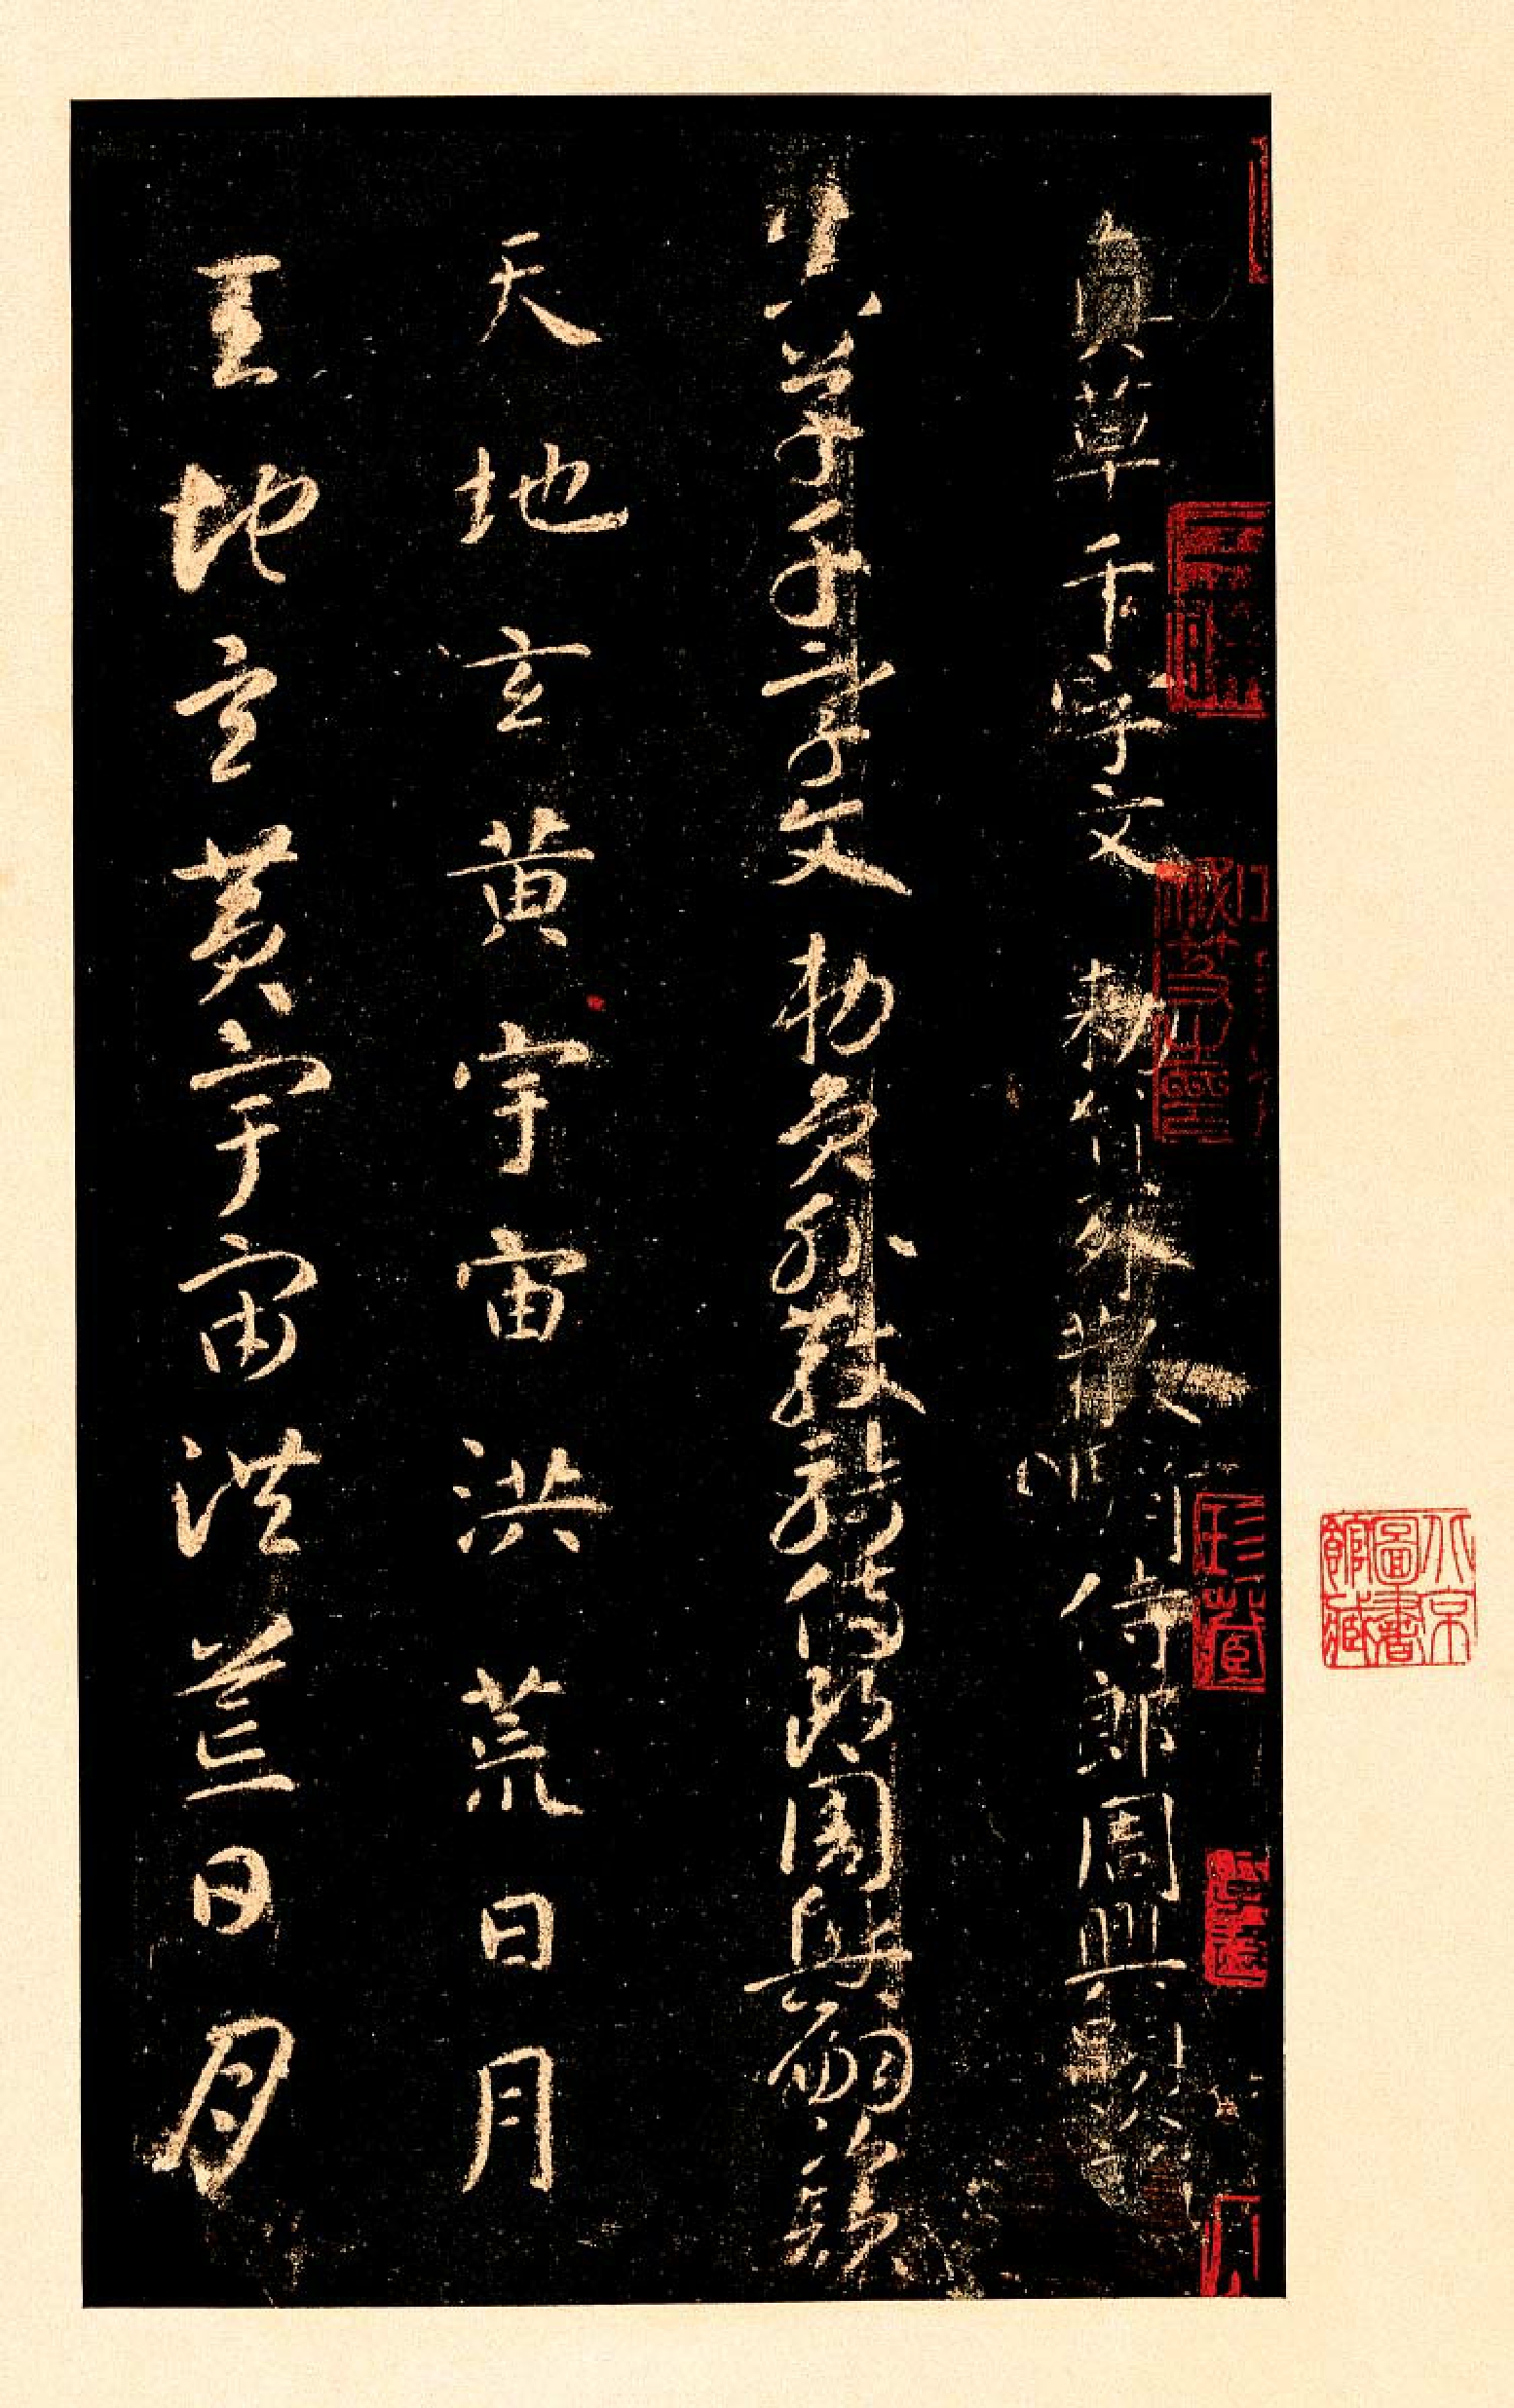 真草千字文 勑員外散騎侍郎周興嗣次韻
真草千字文 勑員外散騎侍郎周興嗣次韻
天地玄黃宇宙洪荒日月
天地玄黃宇宙洪荒日月
北京圖書館藏